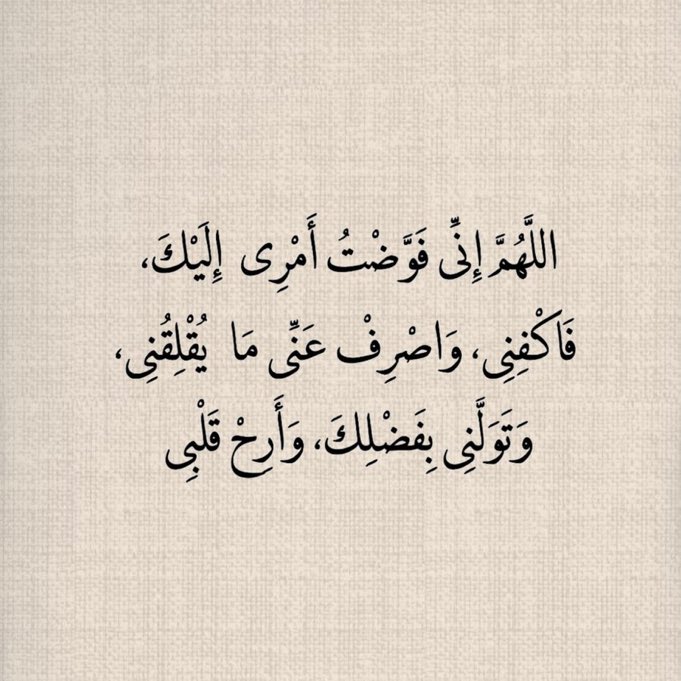 اللَّهُمَّ إِنِّي فَوَّضْتُ أَمْرِى إِلَيْكَ،
فَاكْفِنِي، وَاصْرِفْ عَنِّى مَا يُقْلِقُنِى،
وَتَوَلَّنِي بِفَضْلِكَ، وَأَرِحْ قَلْبِي